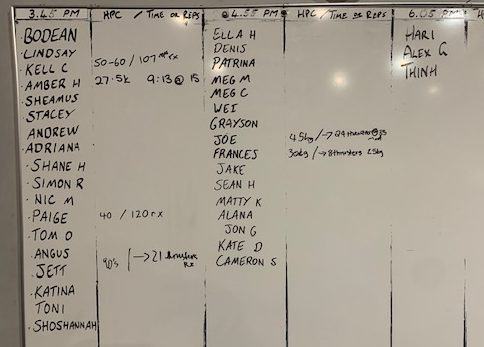 3.45 PM HPC / TIME OR REPS @ 4.55 PM HPC / TIME OR REPS 6.05 PM
BODEAN
LINDSAY
KELL C 50-60 / 107 rx
AMBER H 27.5k 9:13 @ 15
SHEAMUS
STACEY
ANDREW
ADRIANA
SHANE H
SIMON R
NIC M
PAIGE 40 / 120 rx
TOM O
ANGUS
JETT 90's / → 21 thrusters Rx
KATINA
TONI
SHOSHANNAH
ELLA H
DENIS
PATRINA
MEG M
MEG C
WEI
GRAYSON
JOE 45kg / →
FRANCES 30kg / → 8 thrusters 25kg
JAKE
SEAN H
MATTY K
ALANA
JON G
KATE D
CAMERON S
HARI
ALEX G
THINH